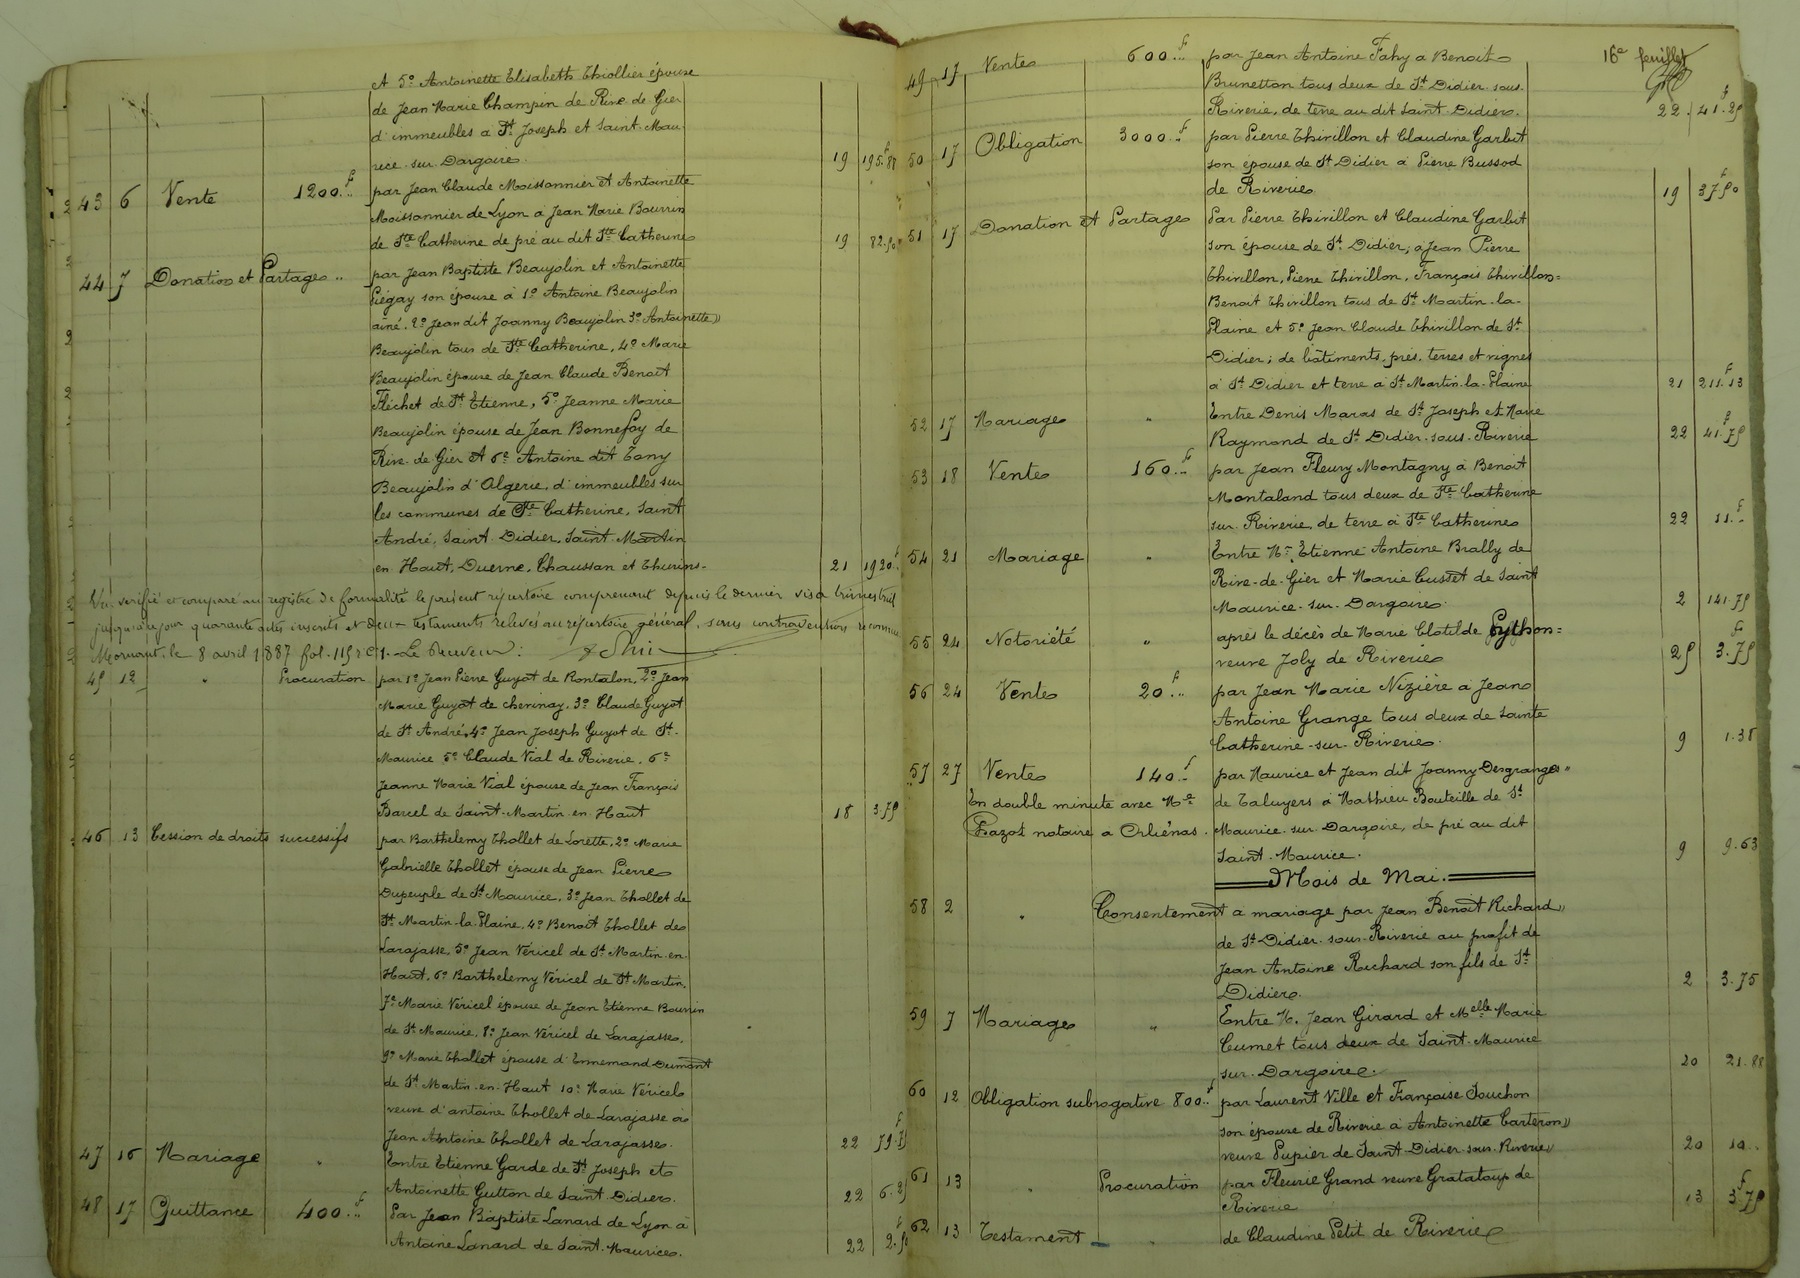 A 5º Antoinette Elisabeth Thiollier épouse
de Jean Marie Champin de Rive de Gier
d'immeubles à St Joseph et Saint-Mau-
rice-sur-Dargoire. 19 195.f87
43 6 Vente 1200.f.. par Jean Claude Moissonnier et Antoinette
Moissonnier de Lyon à Jean Marie Bourrin
de Ste Catherine de pré au dit Ste Catherine 19 82.50
44 7 Donation et Partage .. par Jean Baptiste Beaujolin et Antoinette
Piégay son épouse à 1º Antoine Beaujolin
aîné, 2º Jean dit Joanny Beaujolin 3º Antoinette
Beaujolin tous de Ste Catherine, 4º Marie
Beaujolin épouse de Jean Claude Benoit
Fléchet de St Etienne, 5º Jeanne Marie
Beaujolin épouse de Jean Bonnefoy de
Rive-de Gier Et 6º Antoine dit Tony
Beaujolin d'Algerie, d'immeubles sur
les communes de Ste Catherine, Saint
André, Saint-Didier, Saint-Martin
en-Haut, Duerne, Chaussan et Thurins- 21 1920.f
Vu, vérifié et comparé au registre de formalité le présent répertoire comprenant depuis le dernier visa trimestriel
jusqu'à ce jour quarante actes inscrits et deux testaments relevés au répertoire général, sans contravention reconnue
Mornant, le 8 avril 1887 fol. 115 r c 1. Le Receveur:
45 12 " Procuration par 1º Jean Pierre Guyot de Rontalon, 2º Jean
Marie Guyot de chevinay, 3º Claude Guyot
de St André, 4º Jean Joseph Guyot de St-
Maurice 5º Claude Vial de Riverie, 6º
Jeanne Marie Vial épouse de Jean François
Barcel de Saint-Martin-en-Haut 18 3.75
46 13 Cession de droits successifs par Barthelemy Thollet de Lorette, 2º Marie
Gabrielle Thollet épouse de Jean Pierre
Dupeuple de St Maurice, 3º Jean Thollet de
St Martin-la-Plaine, 4º Benoit Thollet de
Larajasse, 5º Jean Véricel de St Martin-en-
Haut, 6º Barthelemy Véricel de St Martin,
7º Marie Véricel épouse de Jean Etienne Bourrin
de St Maurice, 8º Jean Véricel de Larajasse,
9º Marie Thollet épouse d'Ennemond Dumont
de St Martin-en-Haut 10º Marie Véricel
veuve d'antoine Thollet de Larajasse à
Jean Antoine Thollet de Larajasse. 22
47 16 Mariage " Entre Etienne Garde de St Joseph et
Antoinette Gutton de Saint-Didier. 22
48 17 Quittance 400.f.. Par Jean Baptiste Lanard de Lyon à
Antoine Lanard de Saint-Maurice. 22 2.50
16e feuillet
49 17 Vente 600.f.. par Jean Antoine Fahy à Benoit
Brunetton tous deux de St Didier-sous-
Riverie, de terre au dit Saint-Didier. 22. 41.f25
50 17 Obligation 3000.f.. par Pierre Thivillon et Claudine Garbit
son épouse de St Didier à Pierre Bussod
de Riverie 19 37.f50
51 17 Donation et Partage Par Pierre Thivillon et Claudine Garbit
son épouse de St Didier, à Jean Pierre
Thivillon, Pierre Thivillon, François Thivillon=
Benoit Thivillon tous de St Martin-la-
Plaine et 5º Jean Claude Thivillon de St
Didier; de bâtiments, prés, terres et vignes
à St Didier et terre à St Martin-la-Plaine 21 211.f13
52 17 Mariage " Entre Denis Maras de St Joseph et Marie
Raymond de St Didier-sous-Riverie 22 41.f75
53 18 Vente 160.f.. par Jean Fleury Montagny à Benoit
Montaland tous deux de Ste Catherine
sur-Riverie, de terre à Ste Catherine 22 11.f..
54 21 Mariage " Entre Mr Etienne Antoine Brally de
Rive-de-Gier et Marie Custet de Saint
Maurice-sur-Dargoire. 2 141.75
55 24 Notoriété " après le décès de Marie Clotilde Python=
veuve Joly de Riverie 25 3.f75
56 24 Vente 20.f.. par Jean Marie Nizière à Jean
Antoine Grange tous deux de Sainte
Catherine-sur-Riverie. 9 1.38
57 27 Vente 140.f.. par Maurice et Jean dit Joanny Desgranges
En double minute avec Me de Taluyers à Mathieu Bouteille de St
Lazot notaire à Orliénas. Maurice-sur-Dargoire, de pré au dit
Saint-Maurice. 9 9.63
Mois de Mai.
58 2 " Consentement à mariage par Jean Benoit Richard
de St Didier-sous-Riverie au profit de
Jean Antoine Richard son fils de St
Didier. 2 3.75
59 7 Mariage " Entre M. Jean Girard et Melle Marie
Cumet tous deux de Saint-Maurice
sur-Dargoire. 20 21.88
60 12 Obligation subrogative 800.f.. par Laurent Ville et Françoise Souchon
son épouse de Riverie à Antoinette Carteron
veuve Pupier de Saint-Didier-sous-Riverie 20 10..
61 13 " Procuration par Fleurie Grand veuve Grataloup de
Riverie 13 3f75
62 13 Testament " de Claudine Petit de Riverie